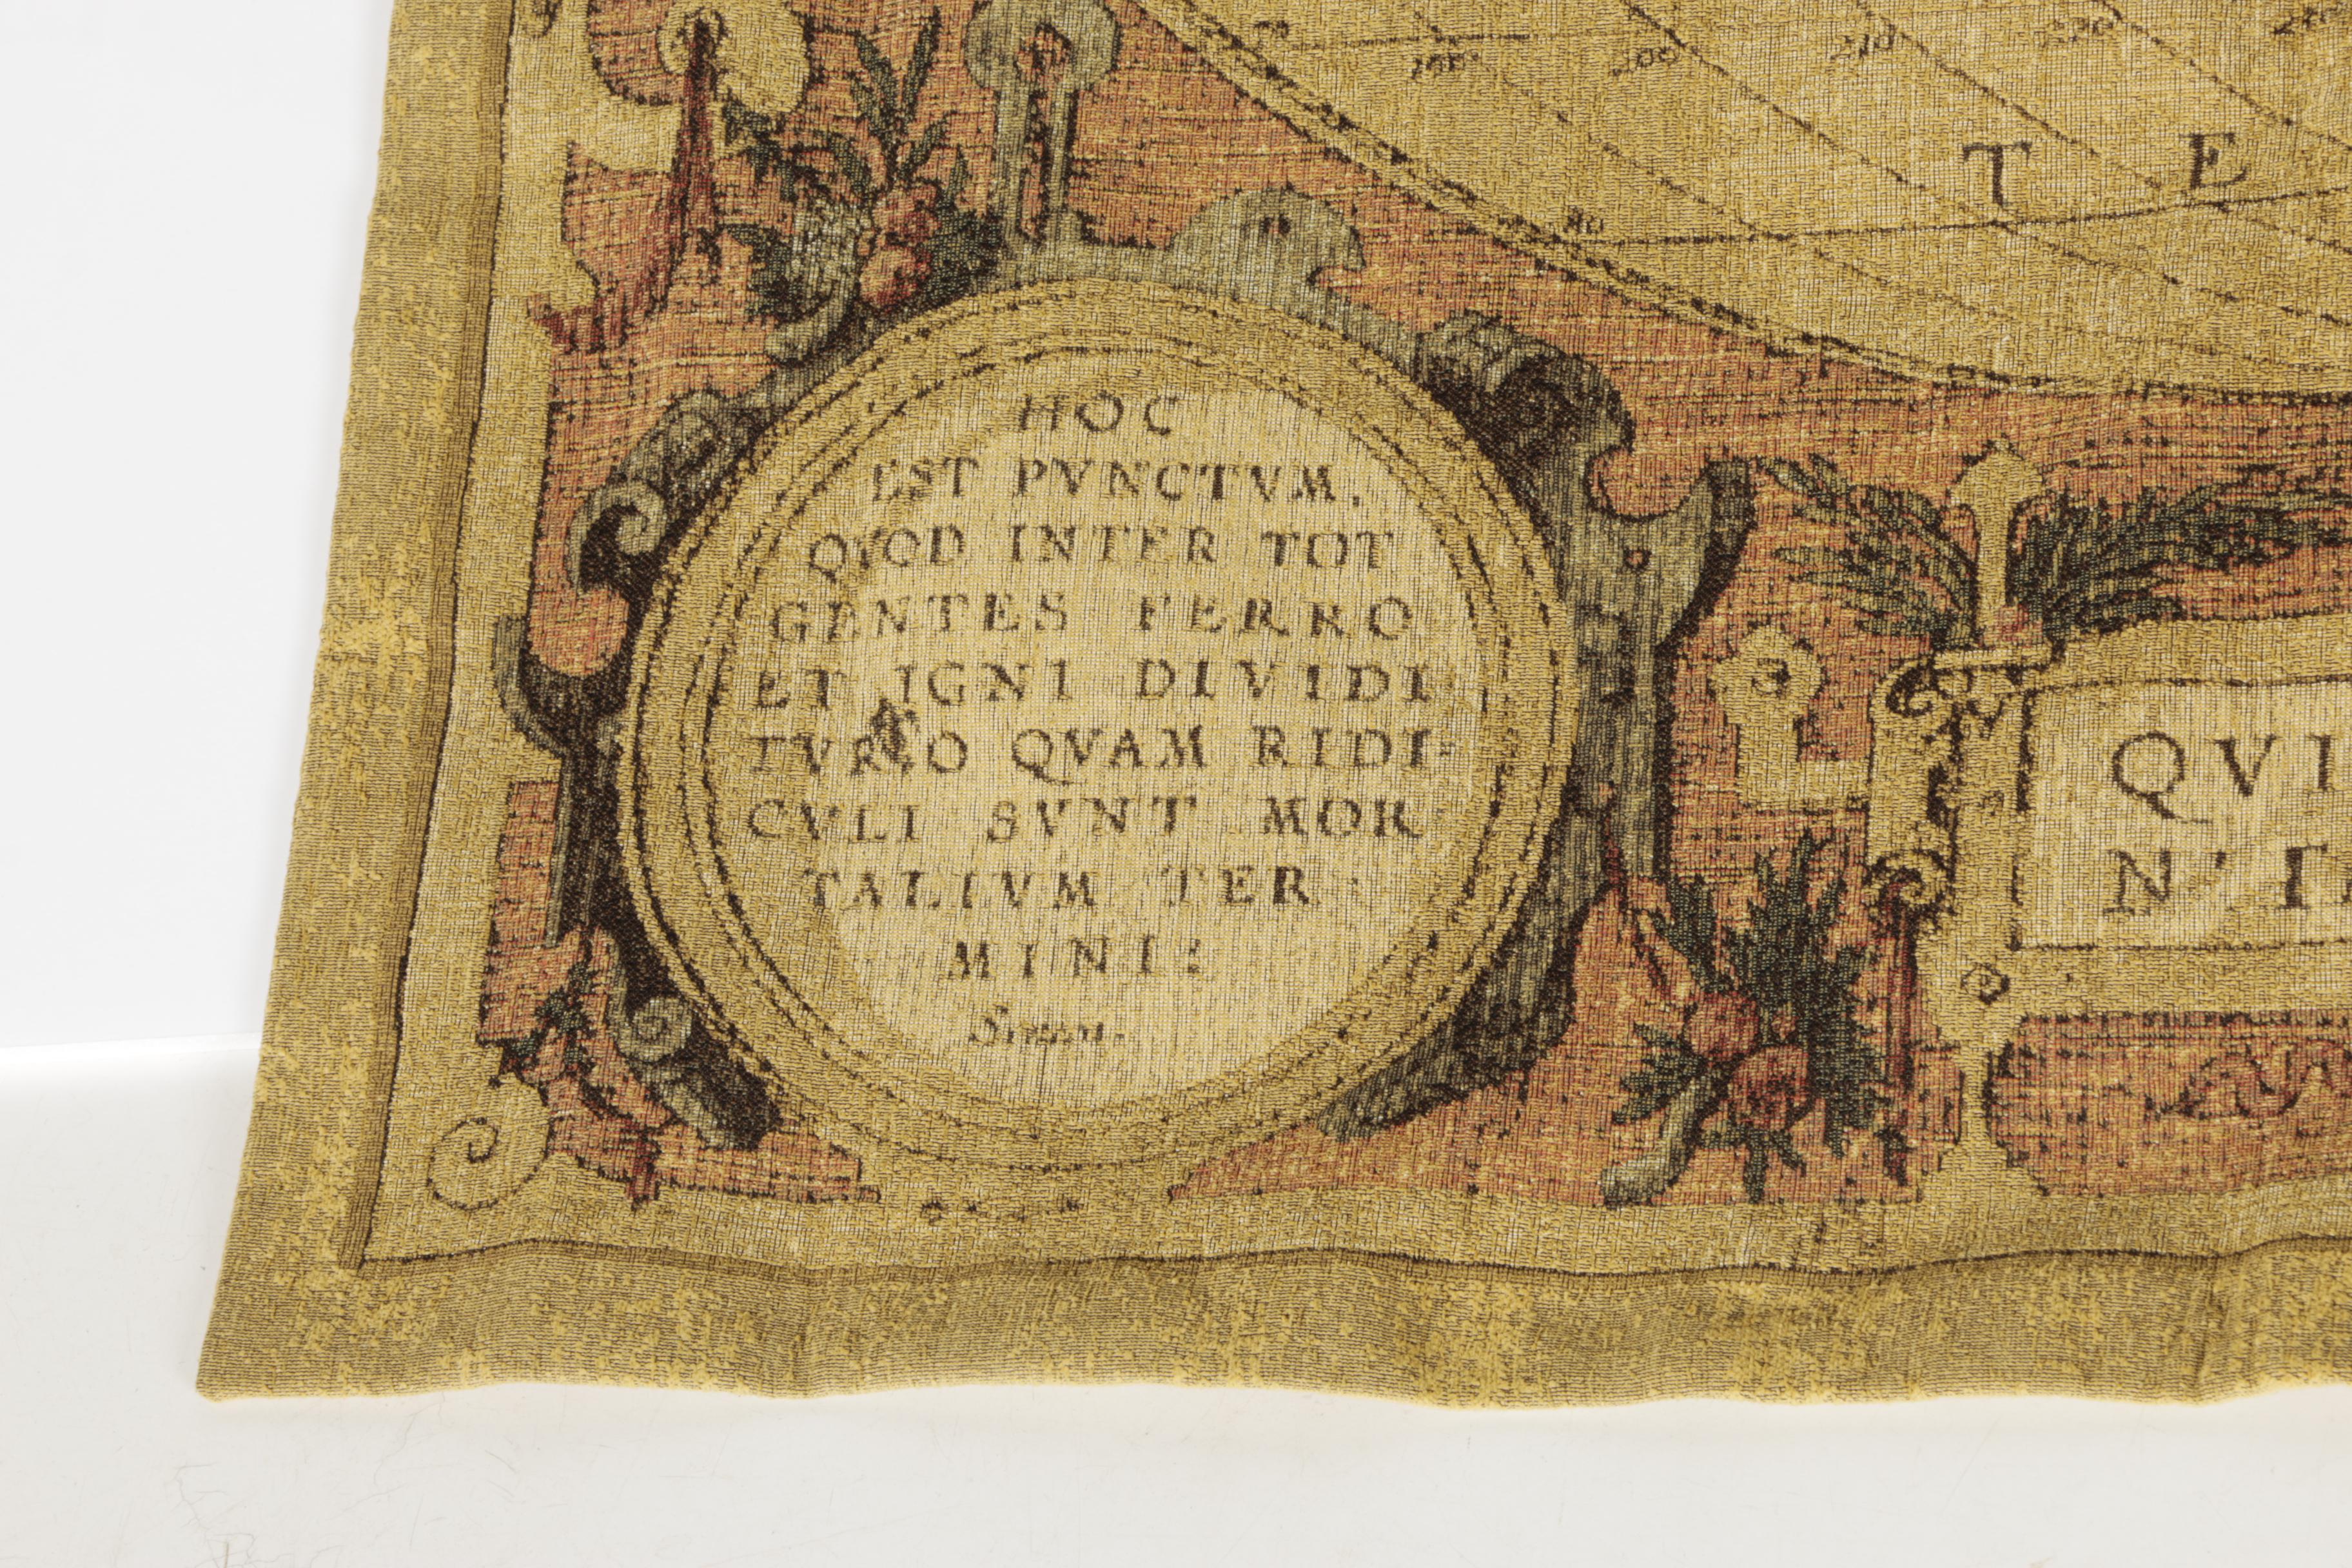 190 200 210 220
T E
80
HOC
EST PVNCTVM,
QVOD INTER TOT
GENTES FERRO
ET IGNI DIVIDI
TVR, O QVAM RIDI=
CVLI SVNT MOR
TALIVM TER
MINI:
QVI
N'